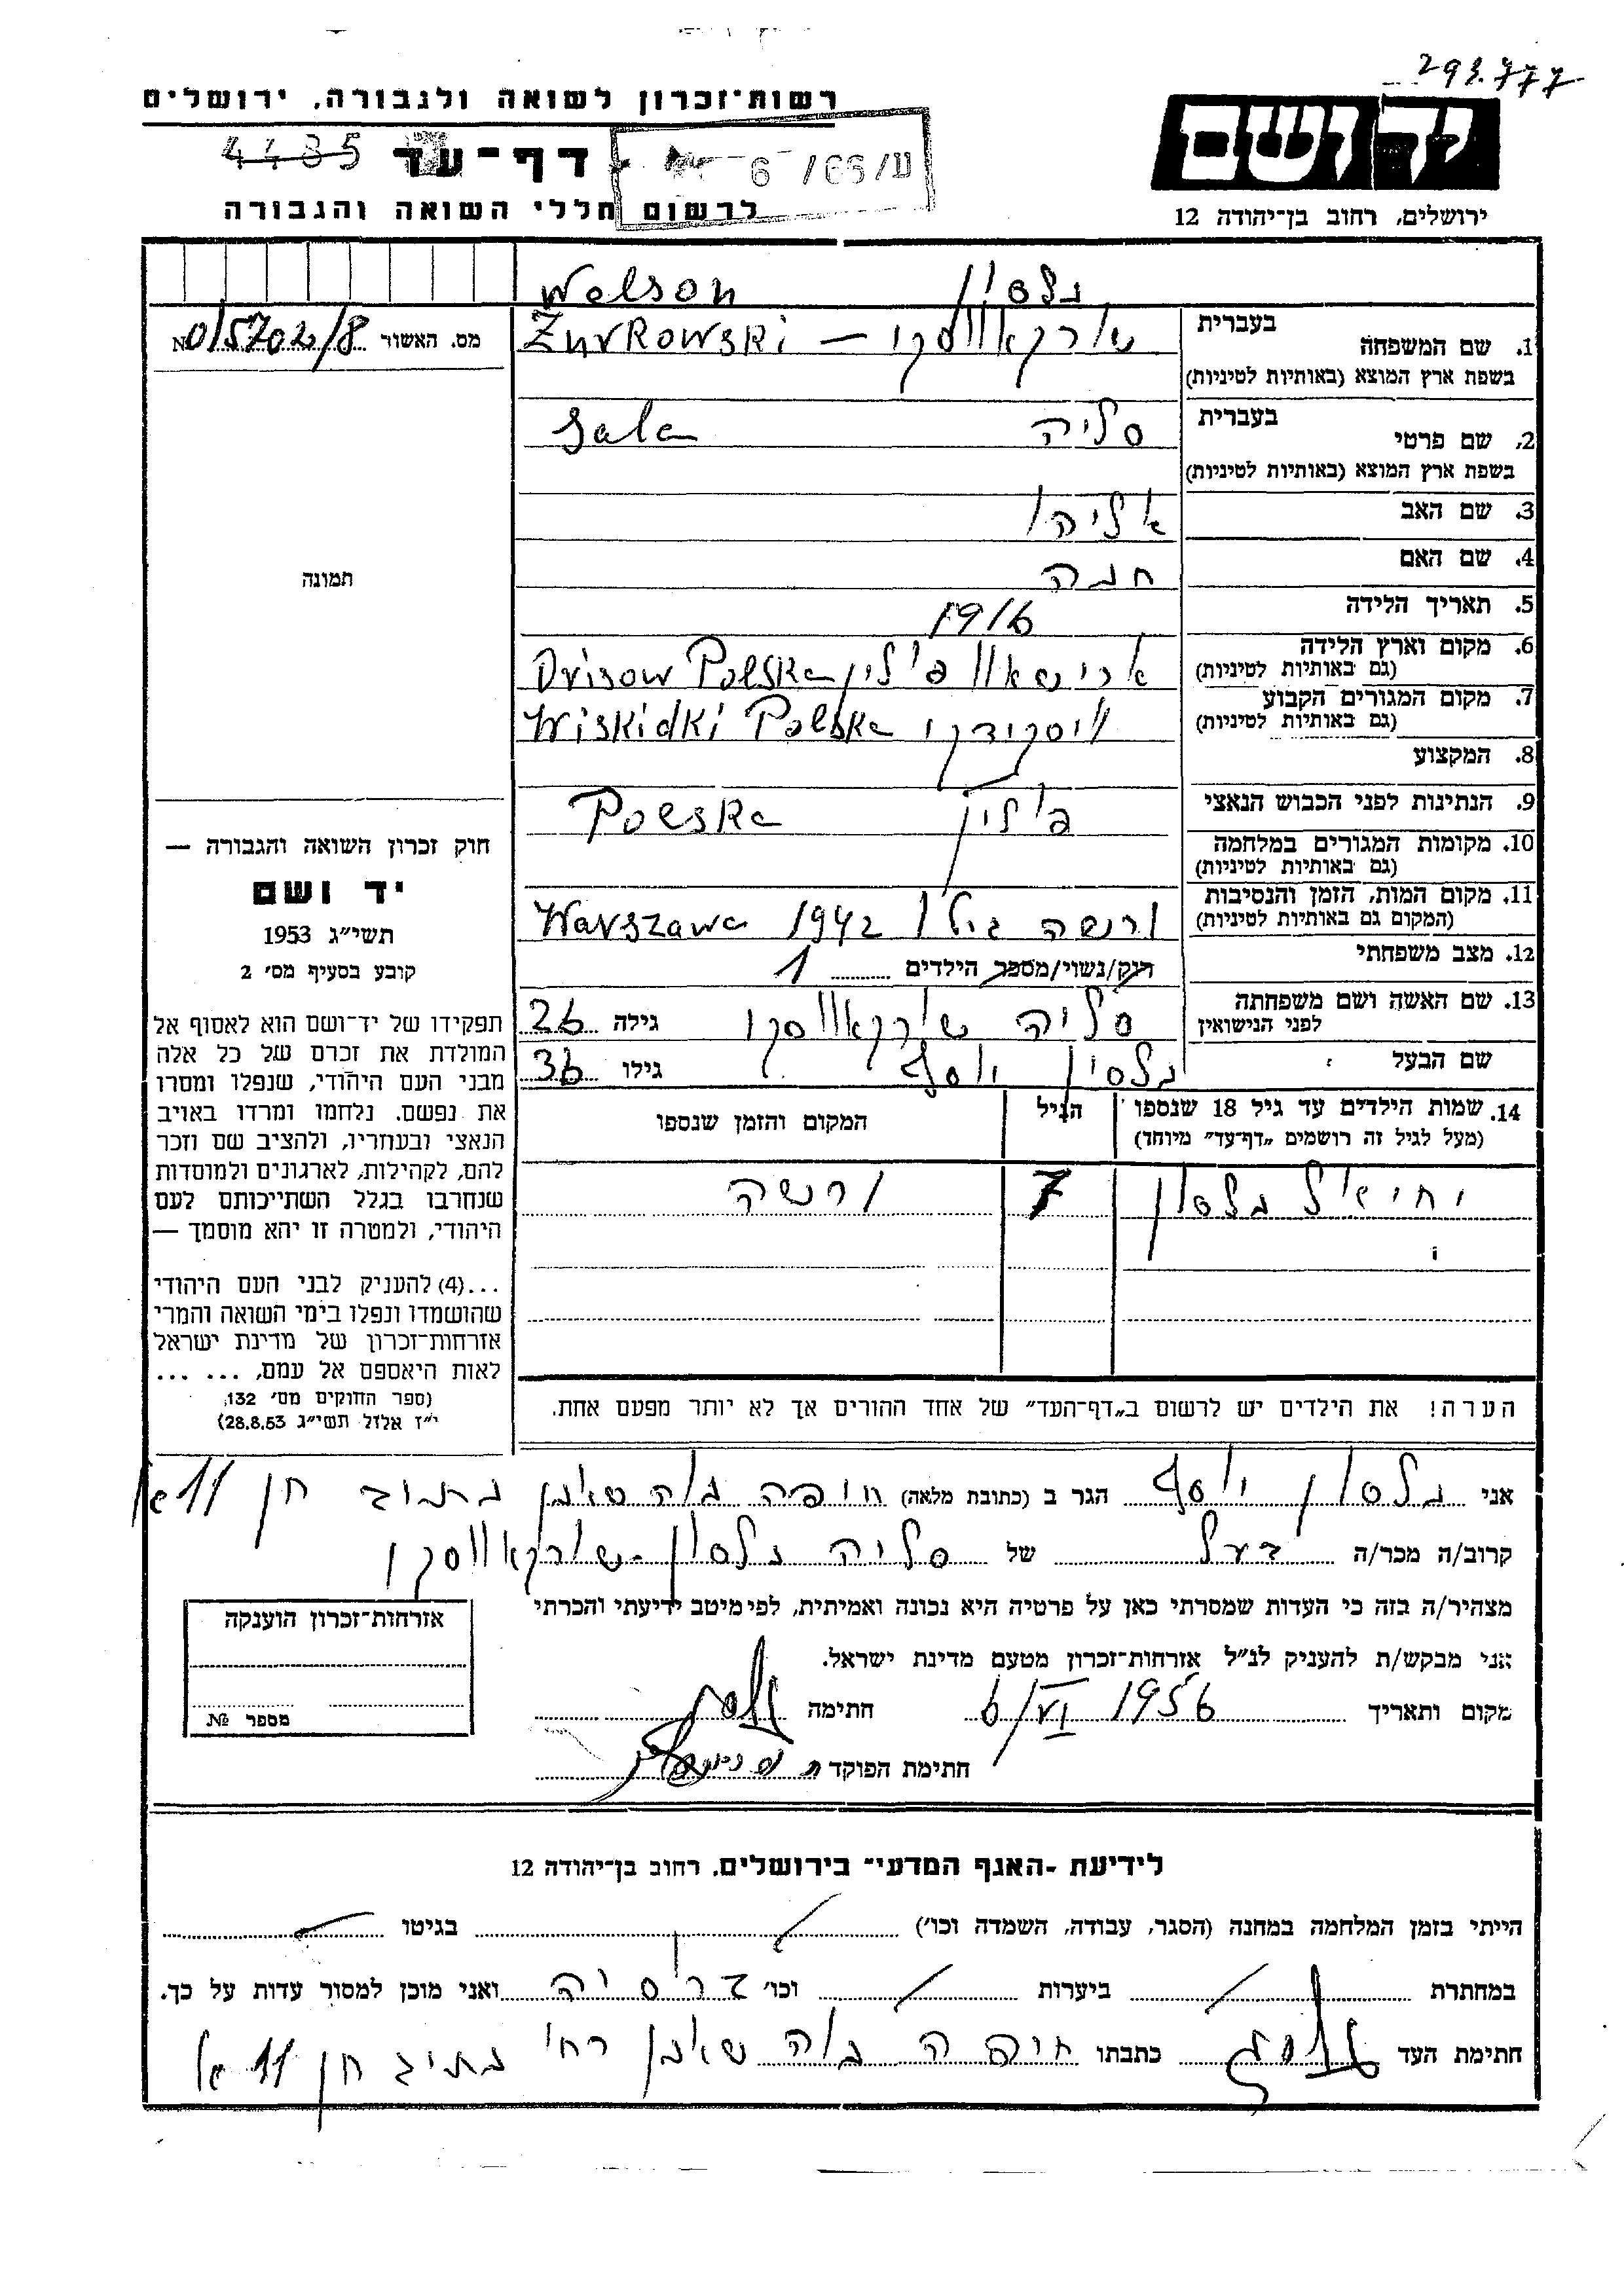 293.777
רשות־זכרון לשואה ולגבורה, ירושלים
יד ושם
4485 דף־עד
6 /66/ע
לרשום חללי השואה והגבורה
ירושלים, רחוב בן־יהודה 12
Welson נלסון
מס. האשור № 015702/8
1. שם המשפחה בעברית
Zurkowski — שורקאווסקי
בשפת ארץ המוצא (באותיות לטיניות)
2. שם פרטי בעברית
Sala סליה
בשפת ארץ המוצא (באותיות לטיניות)
3. שם האב אליהו
4. שם האם חנה
תמונה
5. תאריך הלידה 1916
6. מקום וארץ הלידה
(גם באותיות לטיניות) פולין Polska
7. מקום המגורים הקבוע
(גם באותיות לטיניות) ויסקידקי Wiskidki Polska
8. המקצוע
9. הנתינות לפני הכבוש הנאצי פולין Polska
10. מקומות המגורים במלחמה
(גם באותיות לטיניות)
11. מקום המות, הזמן והנסיבות
(המקום גם באותיות לטיניות) ורשה גילו 1942 Warszawa
12. מצב משפחתי רוק/נשוי/מספר הילדים 1
13. שם האשה ושם משפחתה
לפני הנישואין סליה שורקאווסקי גילה 26
שם הבעל נלסון יוסף גילו 36
14. שמות הילדים עד גיל 18 שנספו הגיל המקום והזמן שנספו
(מעל לגיל זה רושמים „דף־עד" מיוחד)
יחיאל נלסון 7 ורשה
חוק זכרון השואה והגבורה —
יד ושם
תשי"ג 1953
קובע בסעיף מס' 2
תפקידו של יד־ושם הוא לאסוף אל
המולדת את זכרם של כל אלה
מבני העם היהודי, שנפלו ומסרו
את נפשם, נלחמו ומרדו באויב
הנאצי ובעוזריו, ולהציב שם וזכר
להם, לקהילות, לארגונים ולמוסדות
שנחרבו בגלל השתייכותם לעם
היהודי, ולמטרה זו יהא מוסמך —
...(4) להעניק לבני העם היהודי
שהושמדו ונפלו בימי השואה והמרי
אזרחות־זכרון של מדינת ישראל
לאות היאספם אל עמם, ... ...
(ספר החוקים מס' 132,
י"ז אלול תשי"ג 28.8.53)
הערה! את הילדים יש לרשום ב„דף־העד" של אחד ההורים אך לא יותר מפעם אחת.
אני נלסון יוסף הגר ב (כתובת מלאה) חיפה נוה שאנן נתיב חן 11 א
קרוב/ה מכר/ה בעל של סליה נלסון־שורקאווסקי
מצהיר/ה בזה כי העדות שמסרתי כאן על פרטיה היא נכונה ואמיתית, לפי מיטב ידיעתי והכרתי
אני מבקש/ת להעניק לנ"ל אזרחות־זכרון מטעם מדינת ישראל.
מקום ותאריך 6/VI 1956 חתימה
חתימת הפוקד
אזרחות־זכרון הוענקה
מספר №
לידיעת -האגף המדעי־ בירושלים, רחוב בן־יהודה 12
הייתי בזמן המלחמה במחנה (הסגר, עבודה, השמדה וכו') בגיטו
במחתרת ביערות וכו' ברוסיה ואני מוכן למסור עדות על כך.
חתימת העד כתבתו חיפה נוה שאנן רח' נתיב חן 11 א